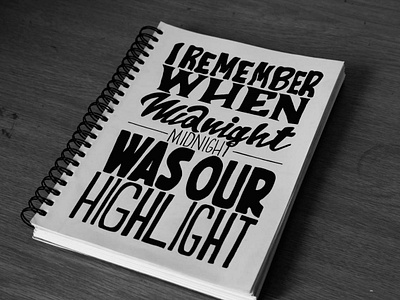 I REMEMBER
WHEN
Midnight
MIDNIGHT
WAS OUR
HIGHLIGHT